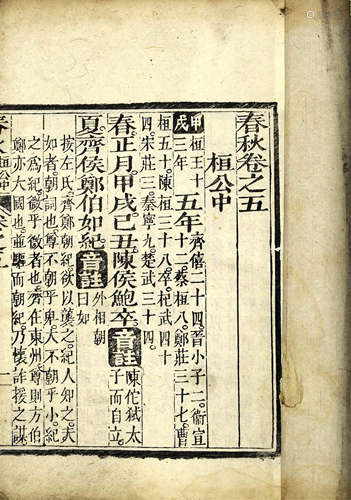 春秋卷之五
桓公中
甲戌 桓王十三年 五年 齊僖二十四。晉小子二。衞宣十二。蔡桓八。鄭莊三十七。曹
桓五十。陳桓三十八。杞武四十四。宋莊三。秦寧九。楚武三十四。
春正月。甲戌己丑。陳侯鮑卒。音註 陳佗弑太子而自立。
夏。齊侯鄭伯如紀。音註 外相朝曰如
按左氏。齊鄭朝紀。欲以襲之。紀人知之。夫
如者。朝詞也。尊不朝乎卑。大不朝乎小。紀
之爲紀。微乎微者也。齊在東州。尊則方伯
鄭亦大國也。並驅而朝紀。乃懷詐諼之謀
春秋 桓公中 卷之五